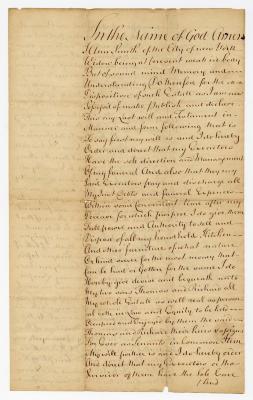 In the Name of God Amen
I Ann Smith of the City of New York
Widow being at present weak in body
But of sound mind Memory and
Understanding Do therefore for the
Disposition of such Estate as I am now
Possesed of make Publish and declare
this my Last will and Testament in
Manner and form following that is
To say first my will is and I do hereby
Order and direct that my Executors
Have the sole direction and Management
Of my funeral And also that they my
Said Executors pay and discharge all
My Just Debts and funeral Expences
Within some Convenient time after my
Decease for which purpose I do give them
Full power and Authority to sell and
Dispose of all my household Kitchen
And other furniture of what nature
Or kind soever for the most money that
Can be had or Gotten for the same I do
Hereby give devise and bequeath unto
My two sons Thomas and Richard all
My whole Estate as well real as person
al both in Law and Equity to be held
Occupied and Enjoyed by them the said
Thomas and Richard their heirs & assigns
For Ever as Tenants in Common Item
My will further is and I do hereby order
And direct that my Executors or the
Survivor of them have the Sole Care
And